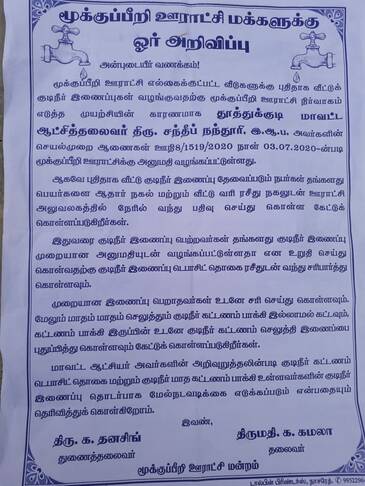 மூக்குப்பீறி ஊராட்சி மக்களுக்கு
ஓர் அறிவிப்பு
அன்புடையீர் வணக்கம்!
மூக்குப்பீறி ஊராட்சி எல்கைக்குட்பட்ட வீடுகளுக்கு புதிதாக வீட்டுக்
குடிநீர் இணைப்புகள் வழங்குவதற்கு மூக்குப்பீறி ஊராட்சி நிர்வாகம்
எடுத்த முயற்சியின் காரணமாக தூத்துக்குடி மாவட்ட
ஆட்சித்தலைவர் திரு. சந்தீப் நந்தூரி, இ.ஆ.ப. அவர்களின்
செயல்முறை ஆணைகள் ஊ8/1519/2020 நாள் 03.07.2020-ன்படி
மூக்குப்பீறி ஊராட்சிக்கு அனுமதி வழங்கப்பட்டுள்ளது.
ஆகவே புதிதாக வீட்டு குடிநீர் இணைப்பு தேவைப்படும் நபர்கள் தங்களது
பெயர்களை ஆதார் நகல் மற்றும் வீட்டு வரி ரசீது நகலுடன் ஊராட்சி
அலுவலகத்தில் நேரில் வந்து பதிவு செய்து கொள்ள கேட்டுக்
கொள்ளப்படுகிறீர்கள்.
இதுவரை குடிநீர் இணைப்பு பெற்றவர்கள் தங்களது குடிநீர் இணைப்பு
முறையான அனுமதியுடன் வழங்கப்பட்டுள்ளதா என உறுதி செய்து
கொள்வதற்கு குடிநீர் இணைப்பு டெபாசிட் தொகை ரசீதுடன் வந்து சரிபார்த்து
கொள்ளவும்.
முறையான இணைப்பு பெறாதவர்கள் உடனே சரி செய்து கொள்ளவும்.
மேலும் மாதம் மாதம் செலுத்தும் கட்டணம் பாக்கி இல்லாமல் கட்டவும்,
கட்டணம் பாக்கி இருப்பின் உடனே குடிநீர் கட்டணம் செலுத்தி இணைப்பை
புதுப்பித்து கொள்ளவும் கேட்டுக் கொள்ளப்படுகிறீர்கள்.
மாவட்ட ஆட்சியர் அவர்களின் அறிவுறுத்தலின்படி குடிநீர் கட்டணம்
டெபாசிட் தொகை மற்றும் குடிநீர் மாத கட்டணம் பாக்கி உள்ளவர்களின் குடிநீர்
இணைப்பு தொடர்பாக மேல்நடவடிக்கை எடுக்கப்படும் என்பதையும்
தெரிவித்துக் கொள்கிறோம்.
இவண்,
திரு. க. தனசிங்
துணைத்தலைவர்
திருமதி. க. கமலா
தலைவர்
மூக்குப்பீறி ஊராட்சி மன்றம்
டால்பின் பிரிண்டர்ஸ், நாசரேத்.